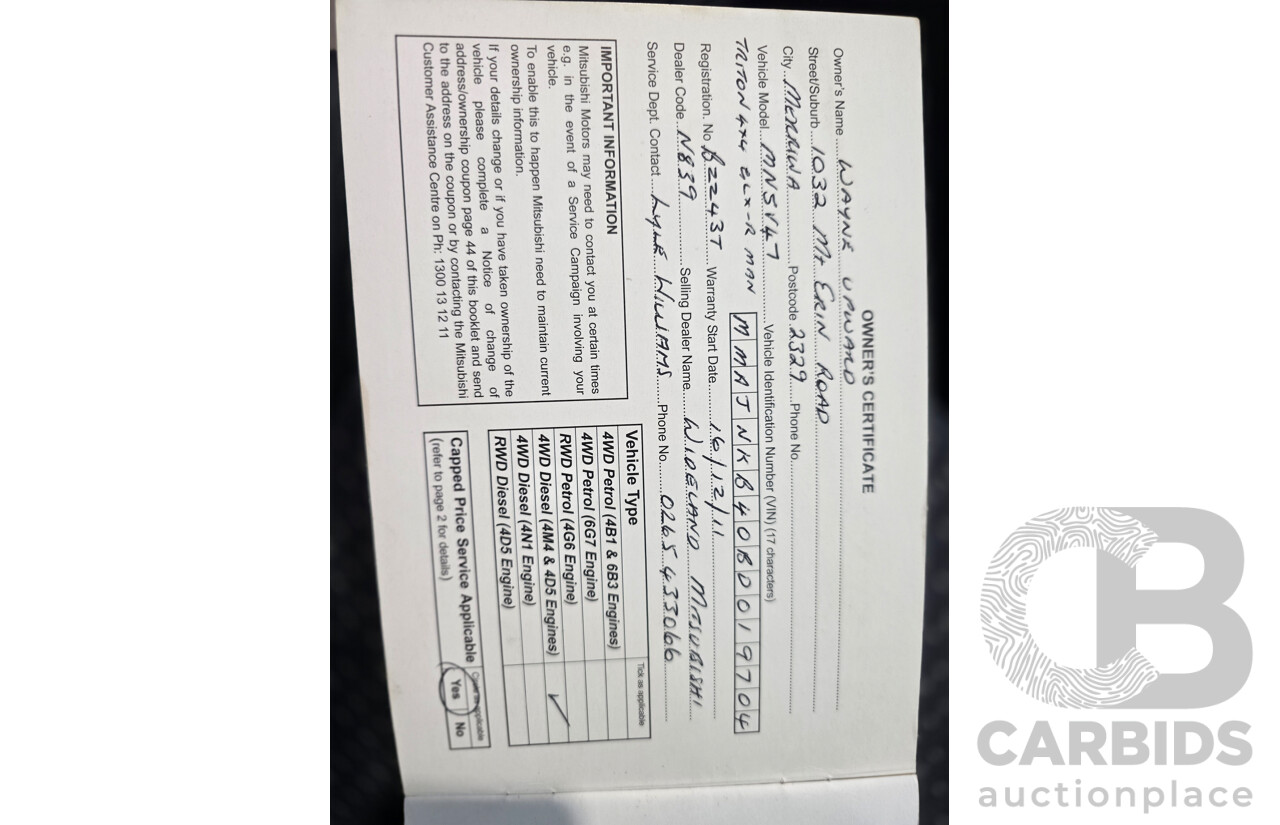 OWNER'S CERTIFICATE
Owner's Name WAYNE UPWARD
Street/Suburb 1032 Mt ERIN ROAD
City MERRIWA Postcode 2329 Phone No.
Vehicle Model MN5V47 Vehicle Identification Number (VIN) (17 characters)
TRITON 4x4 GLX-R MAN MMAJNKB40BD019704
Registration. No BZZ43T Warranty Start Date 16/12/11
Dealer Code N839 Selling Dealer Name WIDELAND MITSUBISHI
Service Dept. Contact LYLE WILLIAMS Phone No. 0265433066
IMPORTANT INFORMATION
Mitsubishi Motors may need to contact you at certain times
e.g. in the event of a Service Campaign involving your
vehicle.
To enable this to happen Mitsubishi need to maintain current
ownership information.
If your details change or if you have taken ownership of the
vehicle please complete a Notice of change of
address/ownership coupon page 44 of this booklet and send
to the address on the coupon or by contacting the Mitsubishi
Customer Assistance Centre on Ph: 1300 13 12 11
Vehicle Type Tick as applicable
4WD Petrol (4B1 & 6B3 Engines)
4WD Petrol (6G7 Engine)
RWD Petrol (4G6 Engine)
4WD Diesel (4M4 & 4D5 Engines) ✓
4WD Diesel (4N1 Engine)
RWD Diesel (4D5 Engine)
Capped Price Service Applicable Circle as applicable
(refer to page 2 for details) Yes No
CB
CARBIDS
auctionplace